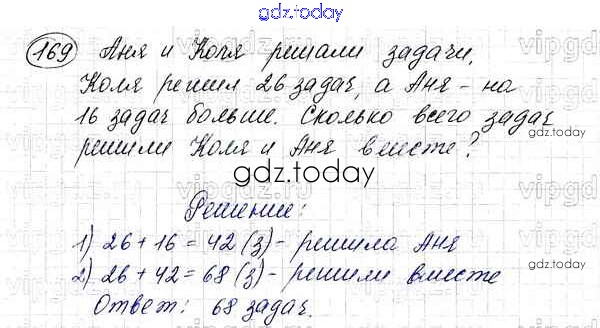 gdz.today
169 Аня и Коля решали задачи,
Коля решил 26 задач, а Аня - на
16 задач больше. Сколько всего задач
gdz.today
решили Коля и Аня вместе?
gdz.today
Решение:
1) 26 + 16 = 42 (з) - решила Аня
gdz.today
2) 26 + 42 = 68 (з) - решили вместе
Ответ: 68 задач.